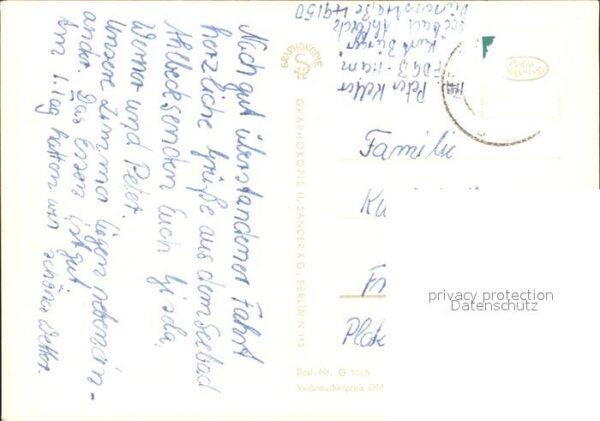 Nach gut überstandener Fahrt
herzliche Grüße aus dem Seebad
Ahlbeck senden Euch Gisela,
Werner und Peter.
Unsere Zimmer liegen nebenein-
ander. Das Essen ist gut.
Am 1. Tag hatten wir schönes Wetter.
GRAPHOKOPIE
GRAPHOKOPIE H. SANDER K.G., BERLIN N 113
Best. Nr. G
Verbraucherpreis
Peter Keller
FDGB-Heim
Kurt Bürger
Seebad Ahlbeck
Familie
Ku
Fr
Plat
privacy protection
Datenschutz